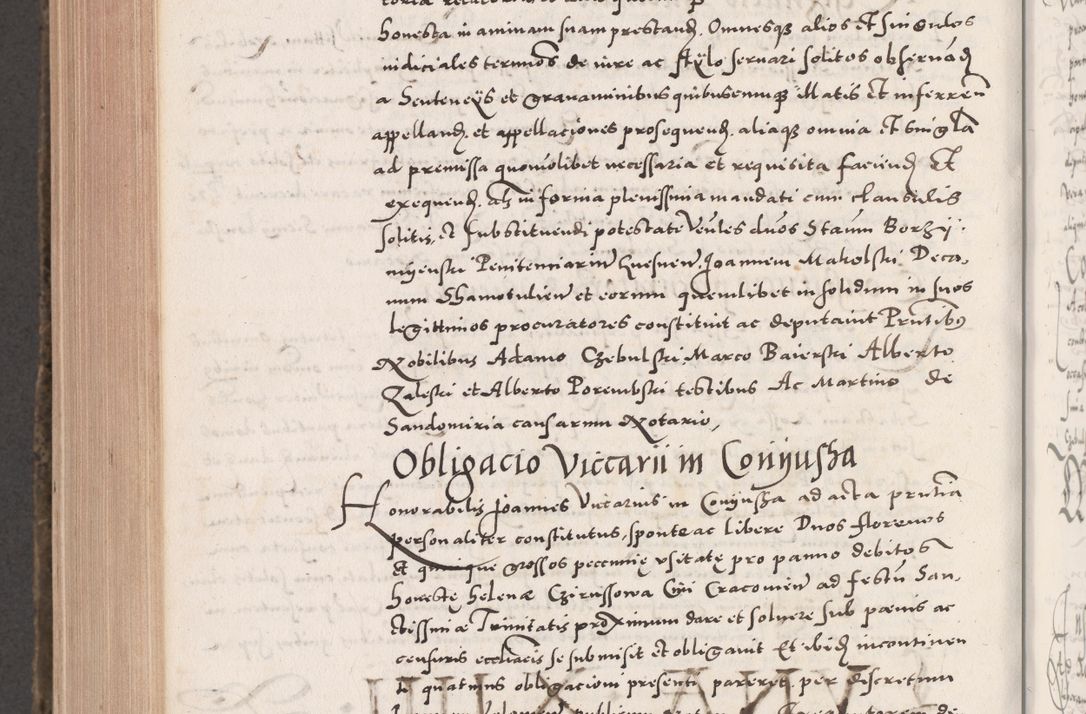 honesta in animam suam prestand. Omnesq alios et singulos
iudiciales terminos de iure ac stylo servari solitos observad
a Sentencys et gravaminibus quibuscumq illatis et inferren
appelland, et appellaciones prosequend, aliaq omnia et singla
ad premissa quomolibet necessaria et requisita faciund Et
exequend, als in forma plenissima mandati cum clausulis
solitis, et substituendi potestate Veules duos Staum Borzy
Penitenciariu Gnesnen, Joannem Makolski Deca,
num Shamotulien et eorum quemlibet in solidum in suos
legittimos procuratores constituit ac deputavit Pntibus
Nobilibus Adamo Czebulski Marco Baierski Alberto
Zaleski et Alberto Porembski testibus Ac Martino de
Sandomiria causarum Notario,
Obligacio Viccarii in Coniusha
Honorabilis Joannes Vicarius in Coniusha ad acta pntia
personaliter constitutus, sponte ac libere Duos florenos
et quinque grossos peccunię usitatę pro panno debitos
honestę Helenæ Czirussowa Civi Cracovien ad festu San,
ctissimæ Trinitatis proximum dare et solvere sub pœnis ac
censuris ecclicis se submisit et obligavit Et ibid incontinen
ti quatenus obligacioni presenti pareret, per discretum